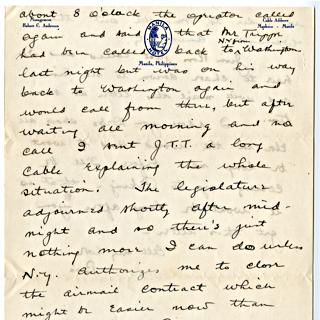 about 8 o'clock the operator called
Management
Robert C. Anderson
MANILA HOTEL
Cable Address
Manhotel - Manila
again and said that Mr Trippe
Manila, Philippines
had been called back to Washington
last night but was on his way
back to Washington again and
would call from there, but after
waiting all morning and no
call I sent J.T.T. a long
cable explaining the whole
situation. The legislature
adjourned shortly after mid-
night and so there's just
nothing more I can do unless
N.Y. authorizes me to close
the airmail contract which
might be easier now than